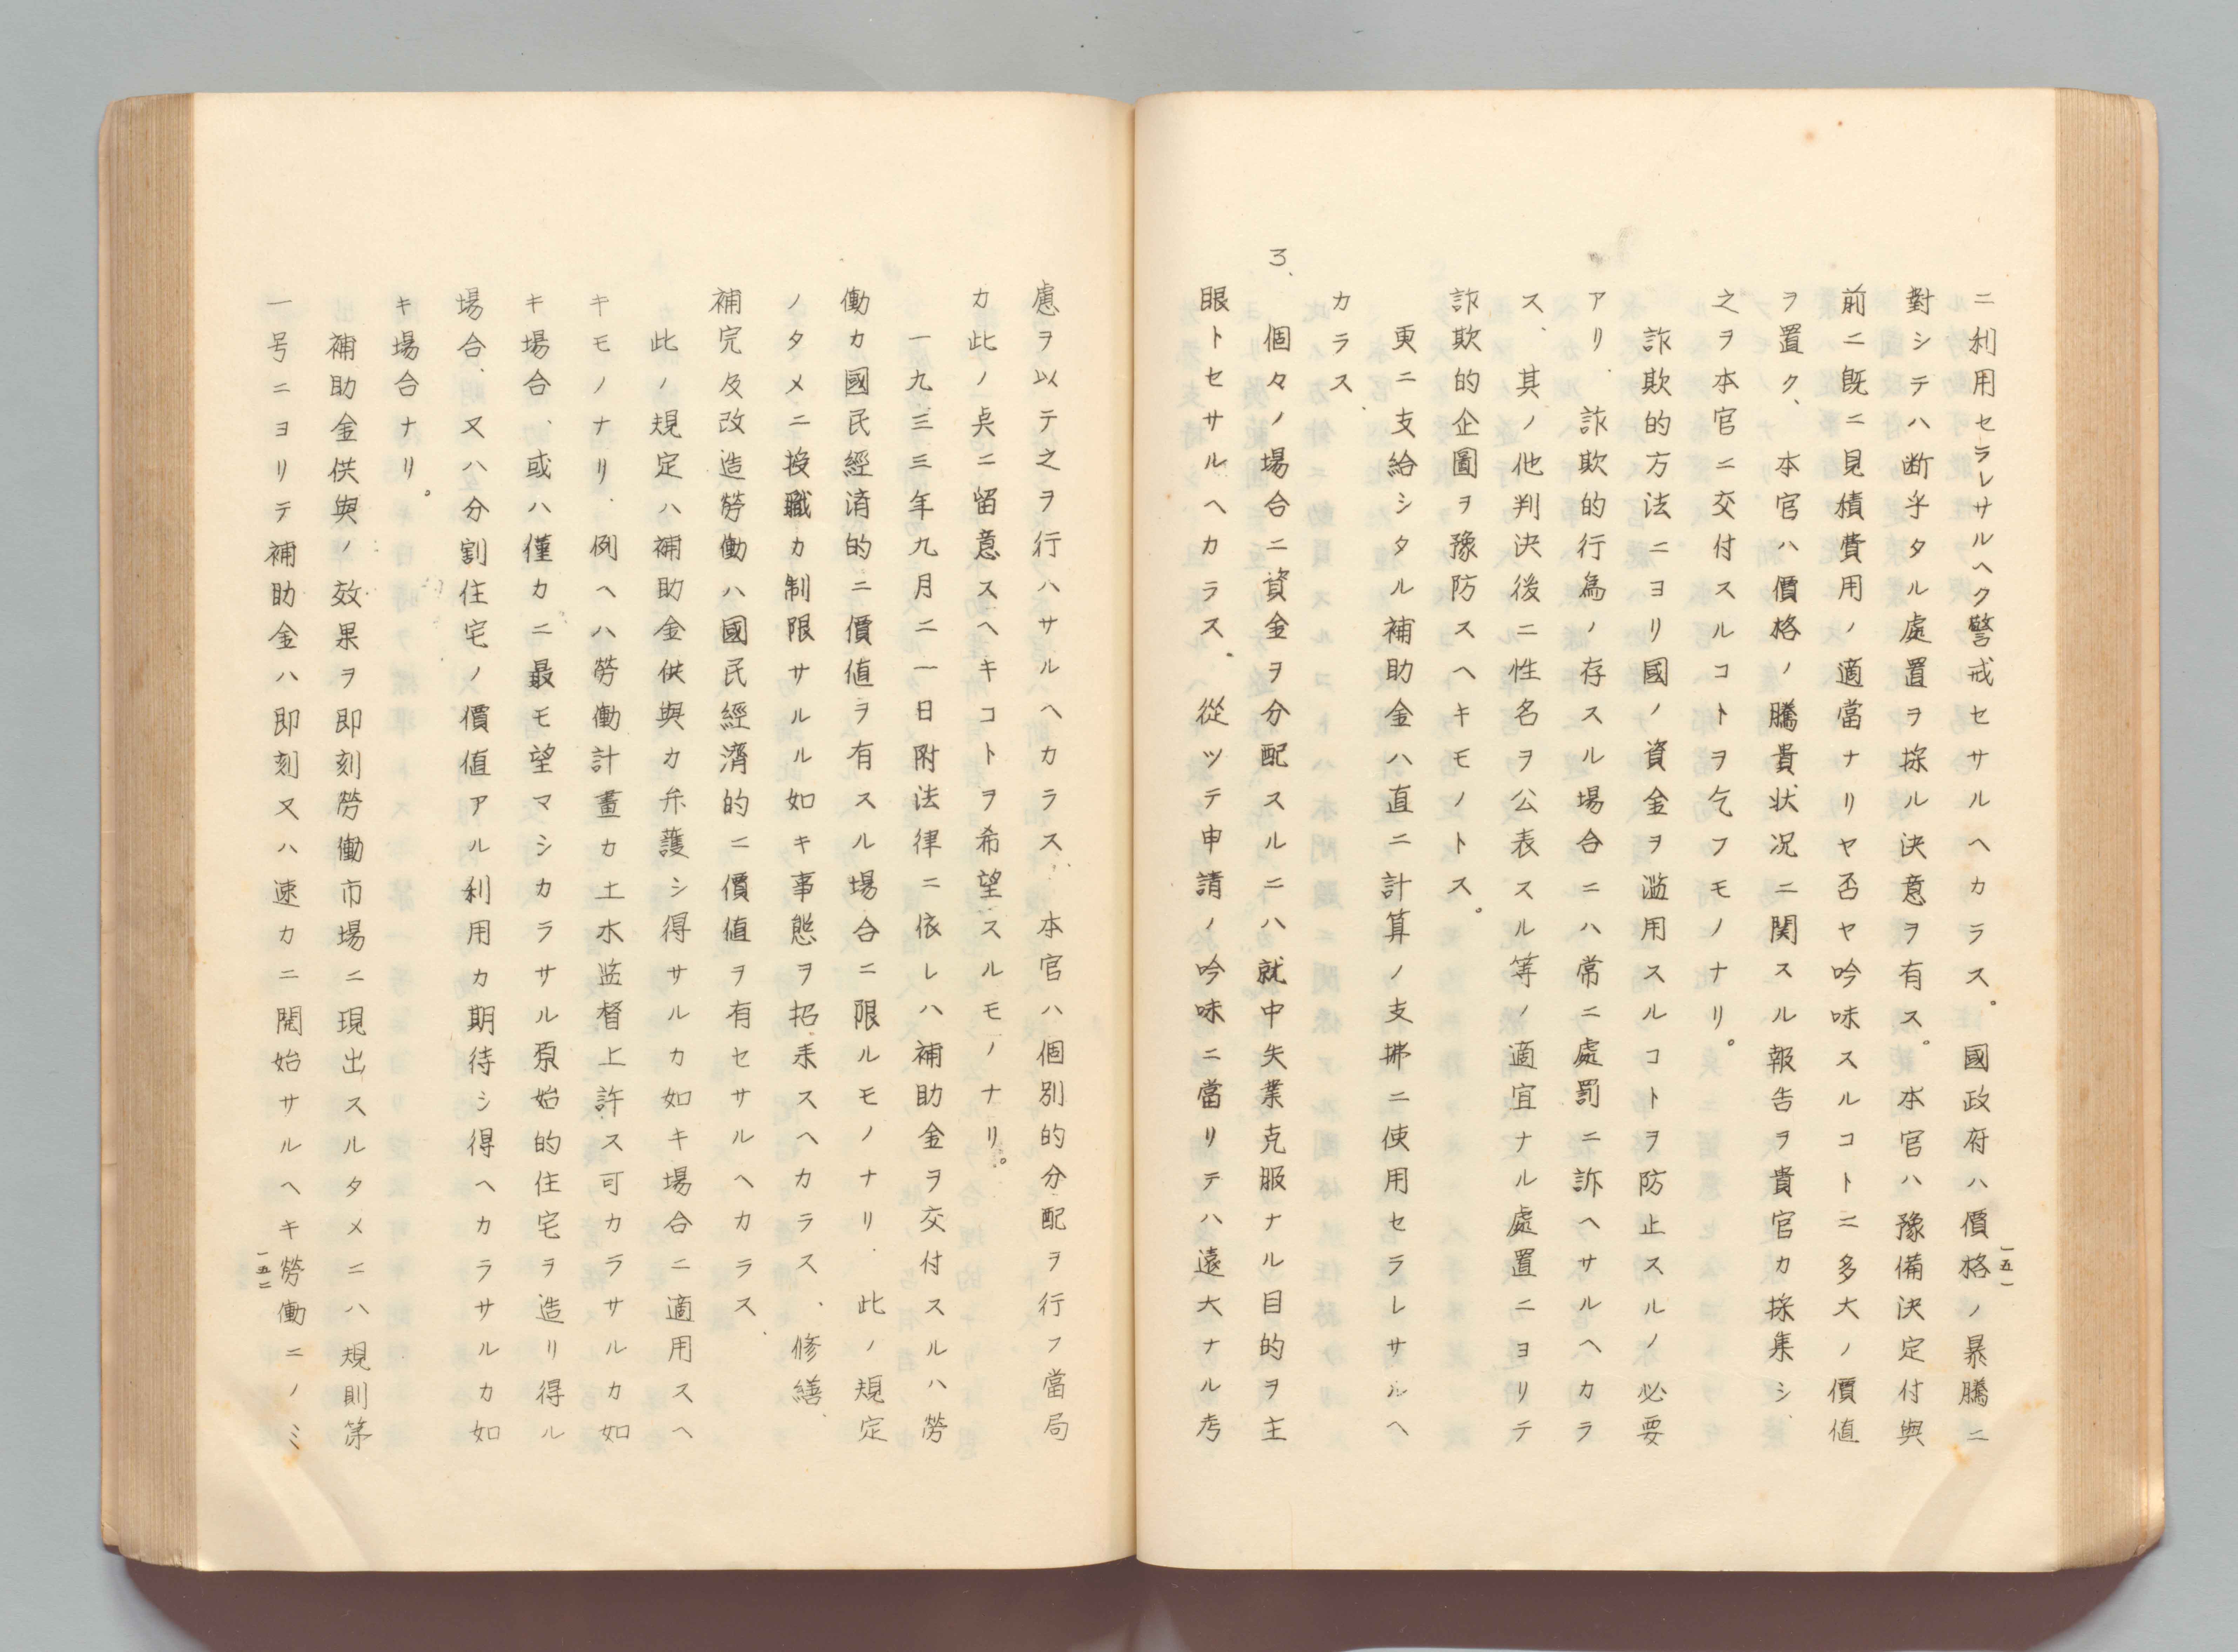 一五一
ニ利用セラレサルヘク警戒セサルヘカラス。國政府ハ價格ノ暴騰ニ
對シテハ断乎タル處置ヲ採ル決意ヲ有ス。本官ハ豫備決定付與
前ニ既ニ見積費用ノ適當ナリヤ否ヤ吟味スルコトニ多大ノ價値
ヲ置ク、本官ハ價格ノ騰貴状況ニ関スル報告ヲ貴官カ採集シ
之ヲ本官ニ交付スルコトヲ乞フモノナリ。
詐欺的方法ニヨリ國ノ資金ヲ濫用スルコトヲ防止スルノ必要
アリ、詐欺的行為ノ存スル場合ニハ常ニ處罰ニ訴ヘサルヘカラ
ス、其ノ他判決後ニ性名ヲ公表スル等ノ適宜ナル處置ニヨリテ
詐欺的企圖ヲ豫防スヘキモノトス。
更ニ支給シタル補助金ハ直ニ計算ノ支拂ニ使用セラレサルヘ
カラス、
3、個々ノ場合ニ資金ヲ分配スルニハ就中失業克服ナル目的ヲ主
眼トセサルヘカラス、從ツテ申請ノ吟味ニ當リテハ遠大ナル考
慮ヲ以テ之ヲ行ハサルヘカラス、本官ハ個別的分配ヲ行フ當局
カ此ノ点ニ留意スヘキコトヲ希望スルモノナリ。
一九三三年九月二一日附法律ニ依レハ補助金ヲ交付スルハ勞
働カ國民經済的ニ價値ヲ有スル場合ニ限ルモノナリ、此ノ規定
ノタメニ授職カ制限サルル如キ事態ヲ招来スヘカラス、修繕、
補完及改造勞働ハ國民經濟的ニ價値ヲ有セサルヘカラス、
此ノ規定ハ補助金供與カ弁護シ得サルカ如キ場合ニ適用スヘ
キモノナリ、例ヘハ勞働計畫カ土木監督上許ス可カラサルカ如
キ場合、或ハ僅カニ最モ望マシカラサル原始的住宅ヲ造リ得ル
場合、又ハ分割住宅ノ價値アル利用カ期待シ得ヘカラサルカ如
キ場合ナリ。
補助金供與ノ效果ヲ即刻勞働市場ニ現出スルタメニハ規則第
一号ニヨリテ補助金ハ即刻又ハ速カニ開始サルヘキ勞働ニノミ
一五二